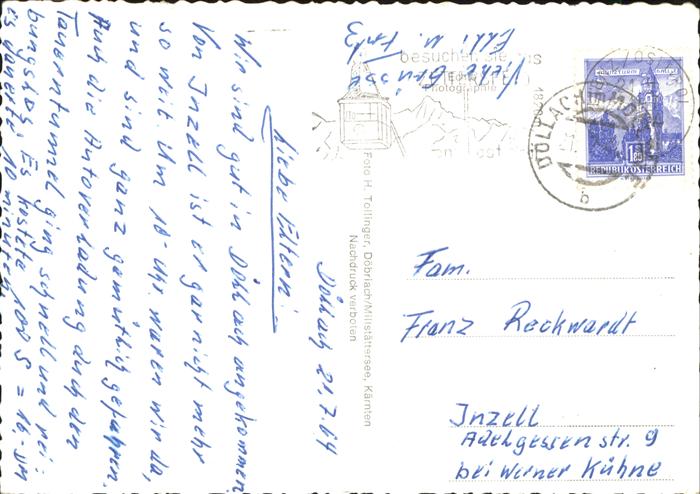 Döllach 21.7.64
Liebe Eltern!
Wir sind gut in Döllach angekommen
Von Inzell ist er gar nicht mehr
so weit. Um 10-Uhr waren wir da,
und sind ganz gemütlich gefahren.
Auch die Autoverladung durch den
Tauerntunnel ging schnell und rei-
bungslos. Es kostete 100 S = 16-DM
Es dauert 10 minuten
Viele Grüsse
Foto H. Tollinger, Döbriach/Millstättersee, Kärnten
Nachdruck verboten
besuchen Sie
DÖLLACH
b
1.80
REPUBLIK ÖSTERREICH
Fam.
Franz Reckwardt
Inzell
Adlgassen str. 9
bei Werner Kühne